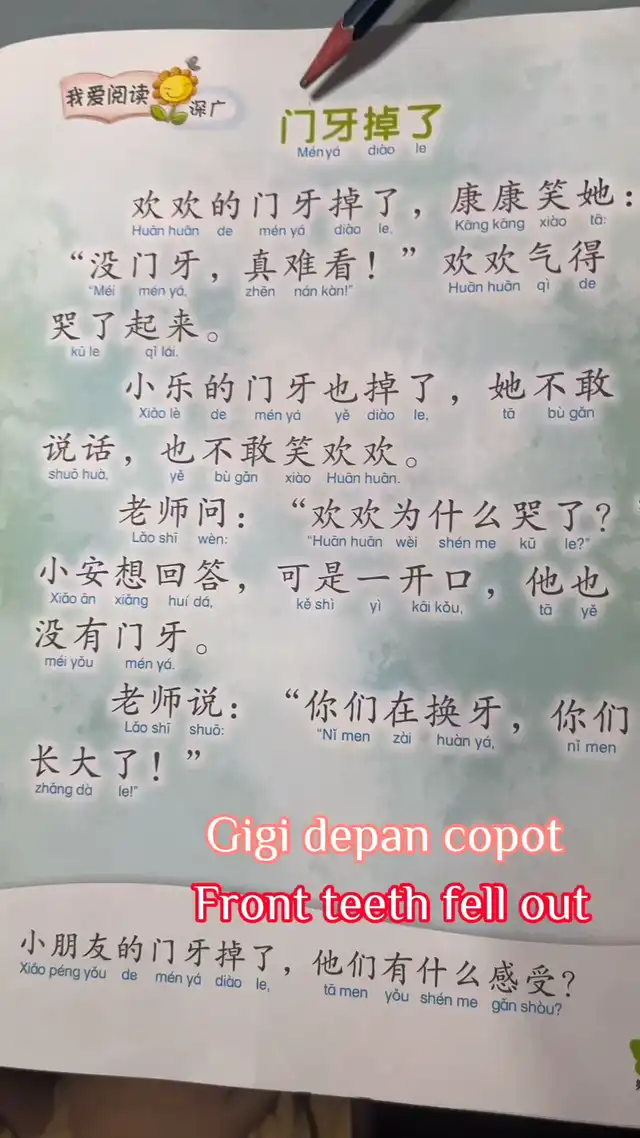 我爱阅读
深广
门牙掉了
Mén yá diào le
欢欢的门牙掉了，康康笑她：
Huān huān de mén yá diào le, Kāng kāng xiào tā:
“没门牙，真难看！”欢欢气得
“Méi mén yá, zhēn nán kàn!” Huān huān qì de
哭了起来。
kū le qǐ lái.
小乐的门牙也掉了，她不敢
Xiǎo lè de mén yá yě diào le, tā bù gǎn
说话，也不敢笑欢欢。
shuō huà, yě bù gǎn xiào Huān huān.
老师问：“欢欢为什么哭了？
Lǎo shī wèn: “Huān huān wèi shén me kū le?”
小安想回答，可是一开口，他也
Xiǎo ān xiǎng huí dá, kě shì yì kāi kǒu, tā yě
没有门牙。
méi yǒu mén yá.
老师说：“你们在换牙，你们
Lǎo shī shuō: “Nǐ men zài huàn yá, nǐ men
长大了！”
zhǎng dà le!”
Gigi depan copot
Front teeth fell out
小朋友的门牙掉了，他们有什么感受？
Xiǎo péng yǒu de mén yá diào le, tā men yǒu shén me gǎn shòu?